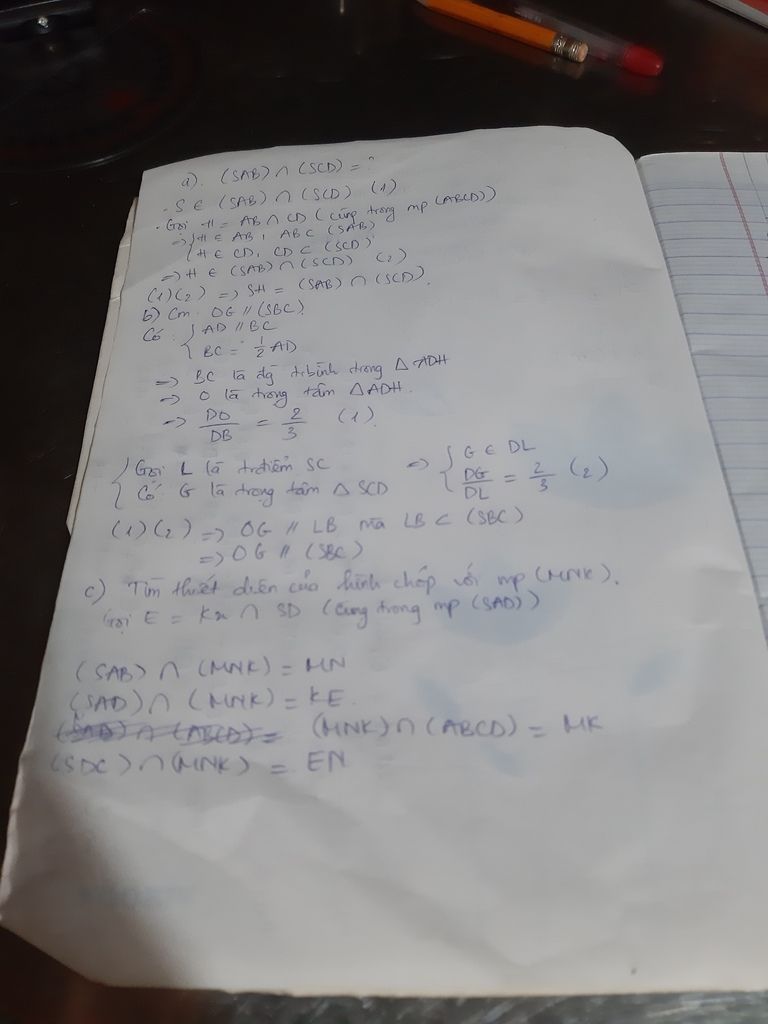 a). (SAB) ∩ (SCD) = ?
. S ∈ (SAB) ∩ (SCD) (1)
. Gọi H = AB ∩ CD (cùng trong mp (ABCD))
=> { H ∈ AB, AB ⊂ (SAB)
H ∈ CD, CD ⊂ (SCD)
=> H ∈ (SAB) ∩ (SCD) (2)
(1)(2) => SH = (SAB) ∩ (SCD).
b) Cm: OG // (SBC).
Có: { AD // BC
BC = 1/2 AD
=> BC là đg tr.bình trong Δ ADH
=> O là trọng tâm ΔADH.
=> DO/DB = 2/3 (1).
{ Gọi L là tr.điểm SC => { G ∈ DL
Có G là trọng tâm Δ SCD DG/DL = 2/3 (2)
(1)(2) => OG // LB mà LB ⊂ (SBC)
=> OG // (SBC)
c) Tìm thiết diện của hình chóp với mp (MNK).
Gọi E = Kx ∩ SD (cùng trong mp (SAD))
(SAB) ∩ (MNK) = MN
(SAD) ∩ (MNK) = KE.
(SAD) ∩ (ABCD) = (MNK) ∩ (ABCD) = MK
(SDC) ∩ (MNK) = EN